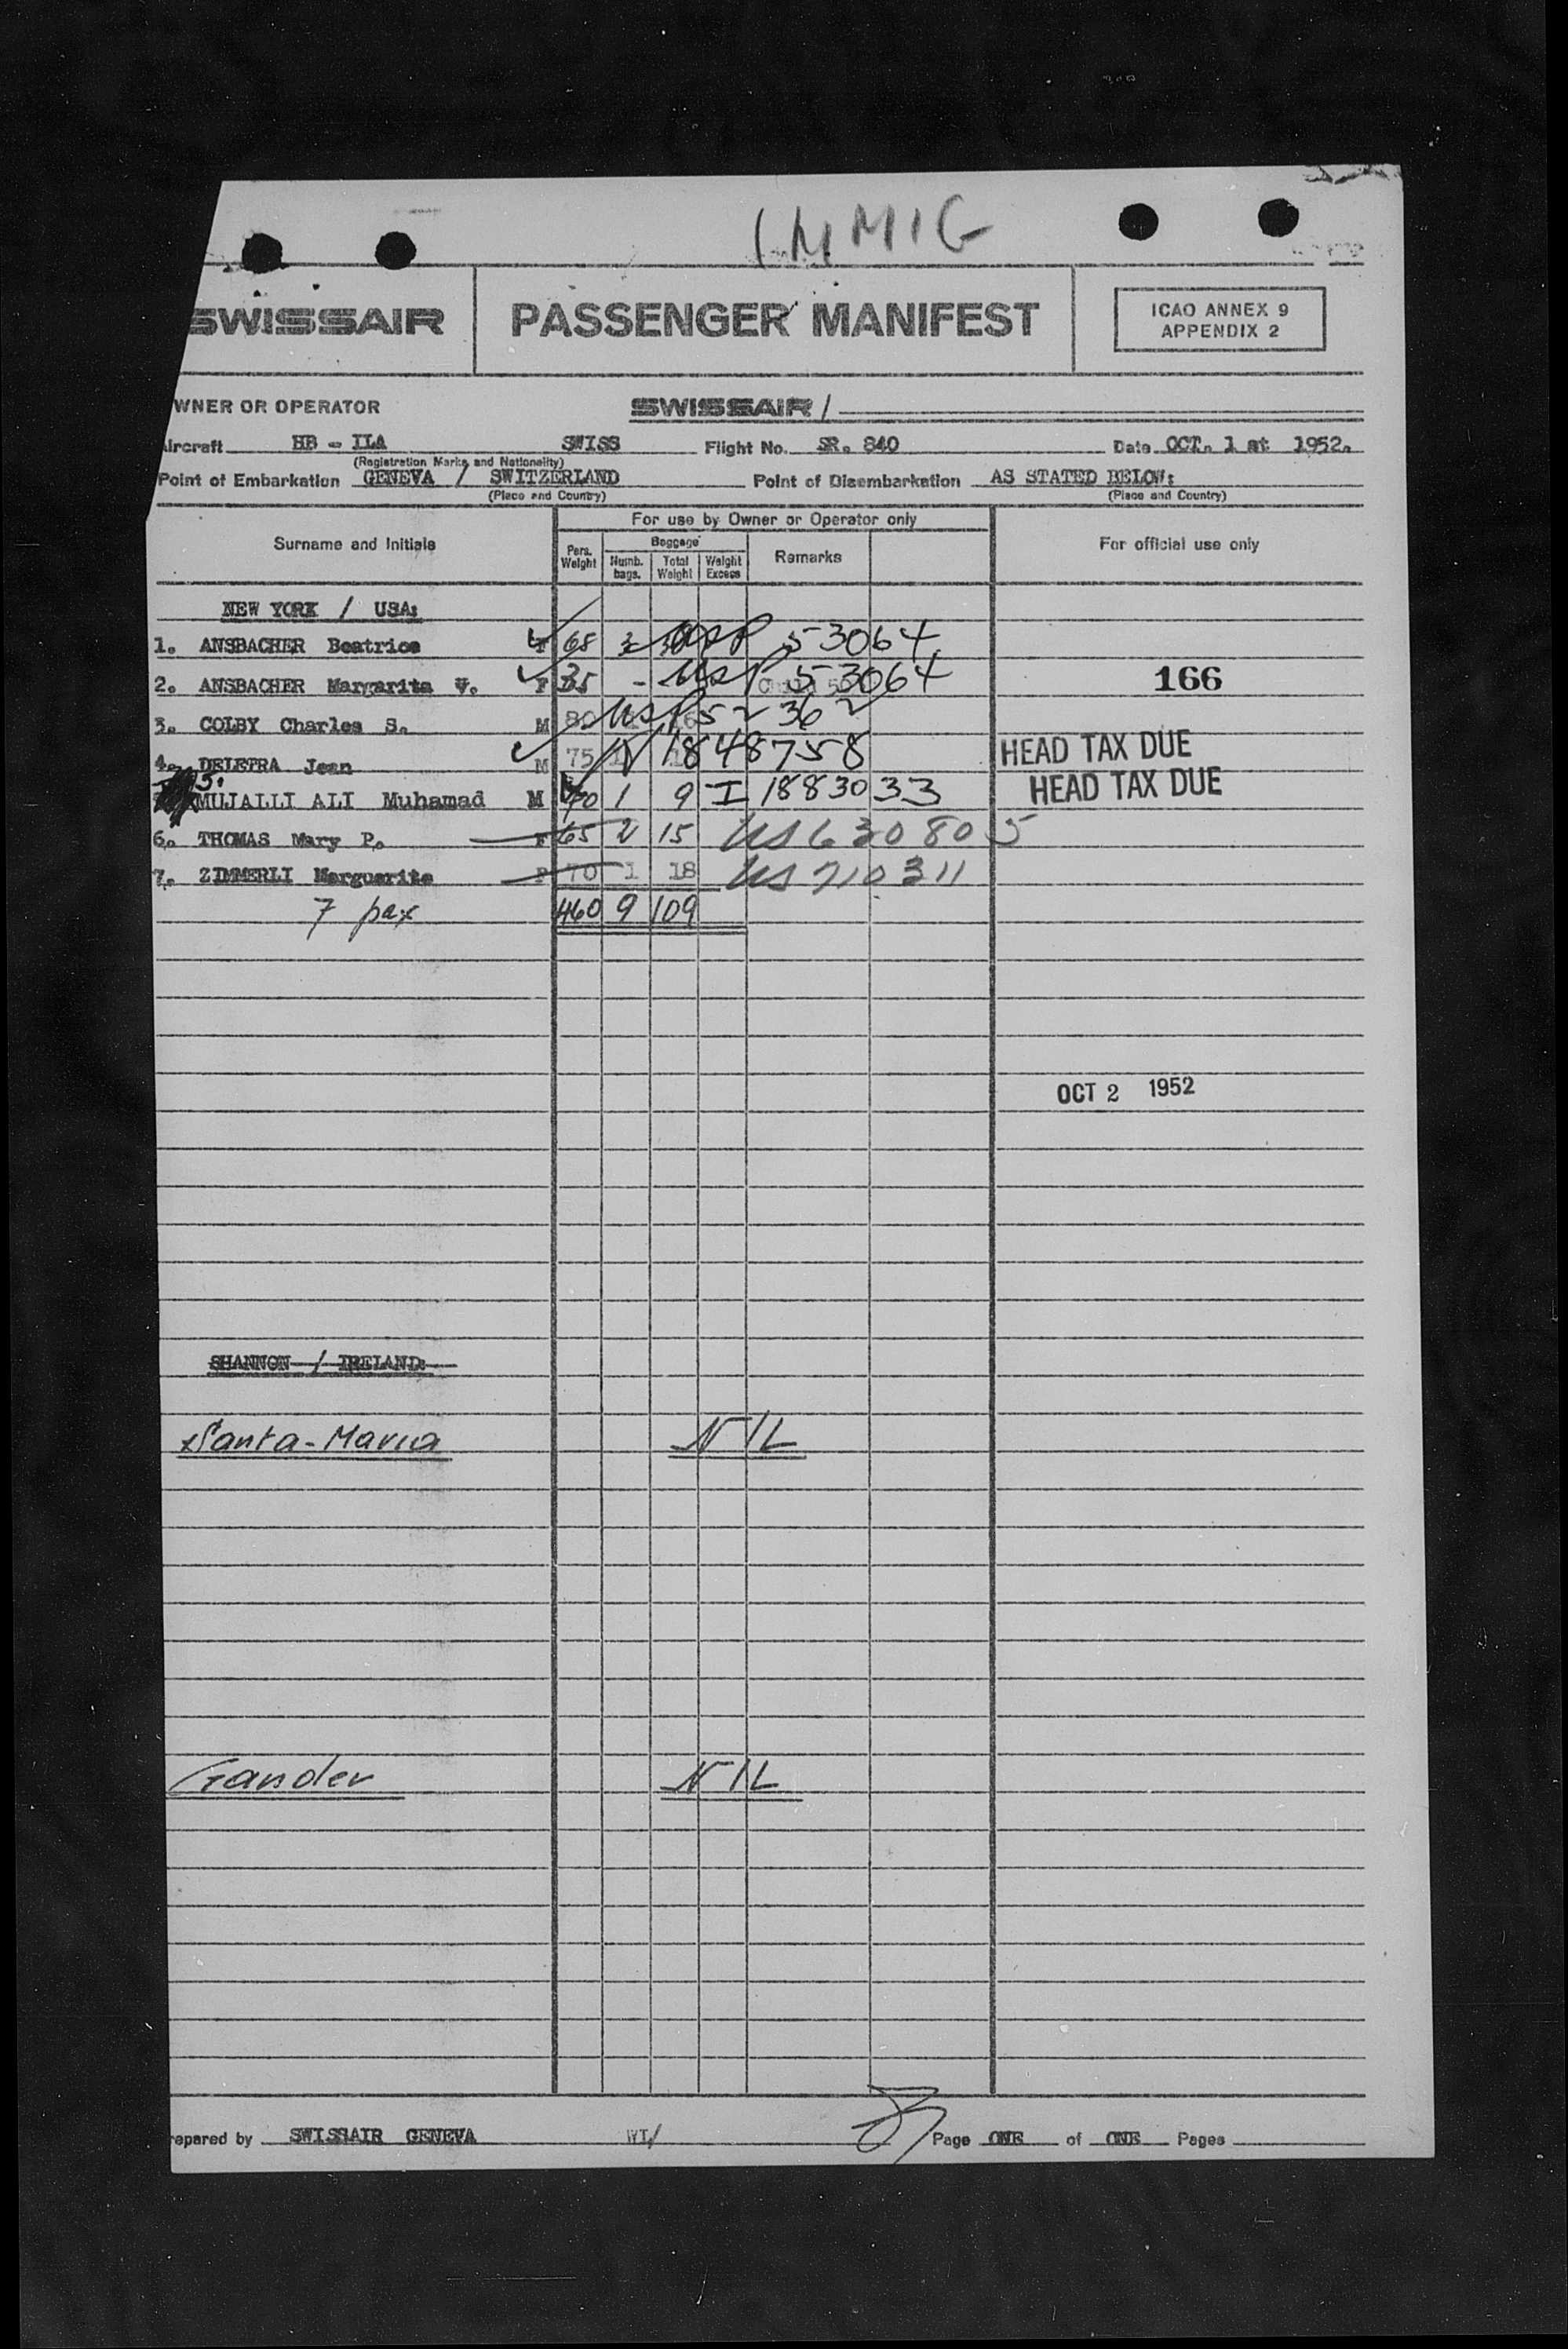 IMMIG
SWISSAIR PASSENGER MANIFEST ICAO ANNEX 9
APPENDIX 2
WNER OR OPERATOR SWISSAIR /
ircraft HB - ILA SWISS Flight No. SR. 840 Date OCT. 1 st 1952.
(Registration Marks and Nationality)
Point of Embarkation GENEVA / SWITZERLAND Point of Disembarkation AS STATED BELOW:
(Place and Country) (Place and Country)
For use by Owner or Operator only
Surname and Initials Pers. Weight Baggage Numb. bags. Total Weight Weight Excess Remarks For official use only
NEW YORK / USA:
1. ANSBACHER Beatrice F 68 3 USP 53064
2. ANSBACHER Margarita V. F 35 - USP 53064 166
3. COLBY Charles S. M 80 USP 52362
4. DELETRA Jean M 75 V 1848758 HEAD TAX DUE
5. MUJALLI ALI Muhamad M 70 1 9 I 1883033 HEAD TAX DUE
6. THOMAS Mary P. F 65 2 15 US 630805
7. ZIMMERLI Marguerite F 70 1 18 US 210311
7 pax 460 9 109
OCT 2 1952
SHANNON / IRELAND:
Santa-Maria NIL
Gander NIL
epared by SWISSAIR GENEVA WI/ Page ONE of ONE Pages